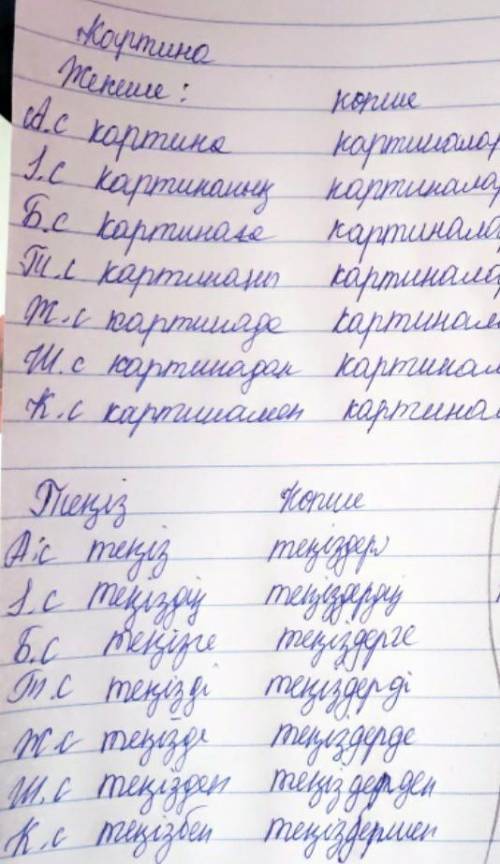 Картина
Жекеше: көпше
А.с картина картиналар
І.с картинаның картинала
Б.с картинаға картинала
Т.с картинаны картинала
Ж.с картинада картинал
Ш.с картинадан картинал
К.с картинамен картинал
Теңіз Көпше
А.с теңіз теңіздер
І.с теңіздің теңіздердің
Б.с теңізге теңіздерге
Т.с теңізді теңіздерді
Ж.с теңізде теңіздерде
Ш.с теңізден теңіздерден
К.с теңізбен теңіздермен